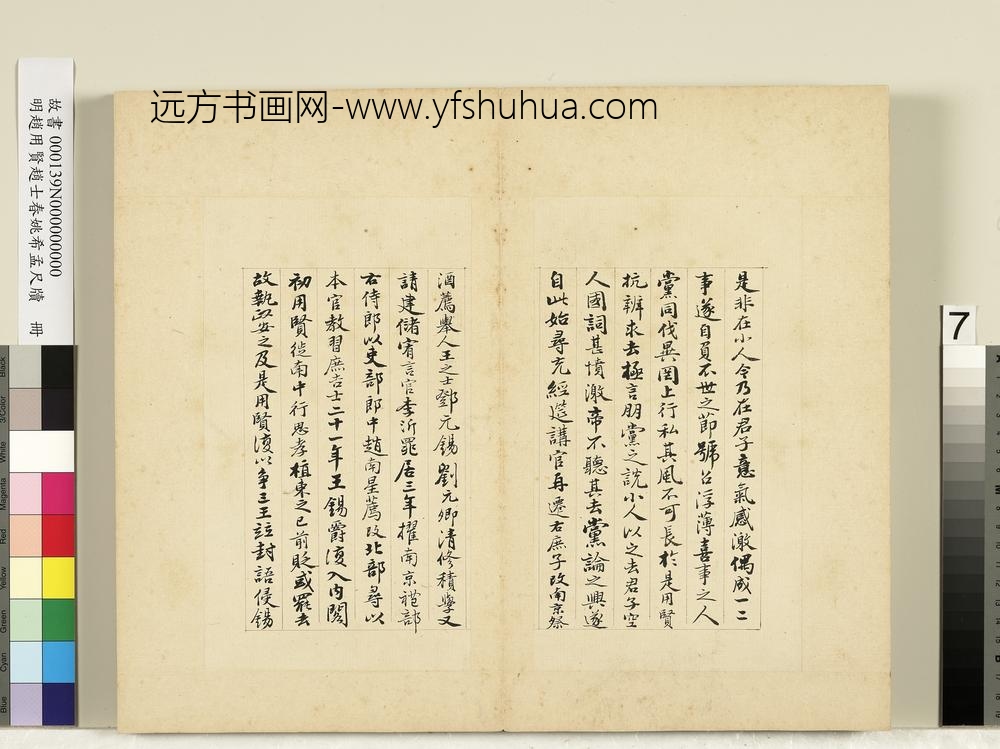 远方书画网-www.yfshuhua.com
故書 000139N000000000
明趙用賢趙士春姚希孟尺牘 冊
是非在小人今乃在君子意氣感激偶成一二
事遂自負不世之節號召浮薄喜事之人
黨同伐異罔上行私其風不可長於是用賢
抗辨求去極言朋黨之說小人以之去君子空
人國詞甚憤激帝不聽其去黨論之興遂
自此始尋充經筵講官再遷右庶子改南京祭
酒薦舉人王之士鄧元錫劉元卿清修積學又
請建儲宥言官李沂罪居三年擢南京禮部
右侍郎以吏部郎中趙南星薦改北部尋以
本官教習庶吉士二十一年王錫爵復入內閣
初用賢徙南中行思孝植東之已前貶或罷去
故執政安之及是用賢復以爭三王竝封語侵錫
7
Black
3/Color
White
Magenta
Red
Yellow
Green
Cyan
Blue